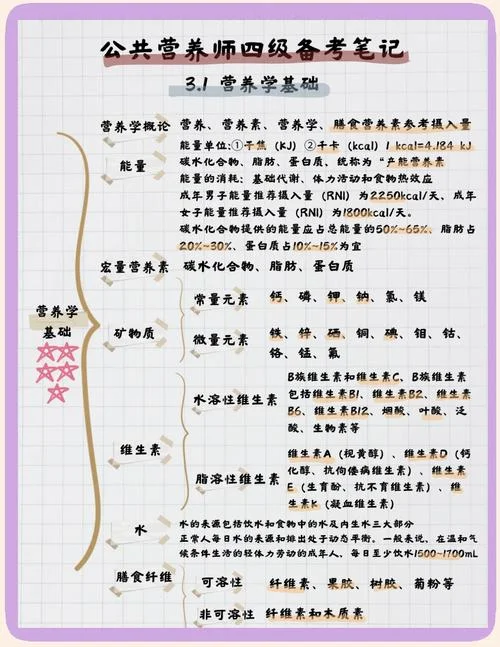 公共营养师四级备考笔记
3.1 营养学基础
营养学基础
营养学概论 营养、营养素、营养学、膳食营养素参考摄入量
能量
能量单位:①千焦（KJ）②千卡（kcal）1 kcal=4.184 kJ
碳水化合物、脂肪、蛋白质，统称为“产能营养素
能量的消耗：基础代谢、体力活动和食物热效应
成年男子能量推荐摄入量（RNI）为2250kcal/天，成年
女子能量推荐摄入量（RNI）为1800kcal/天。
碳水化合物提供的能量应占总能量的50%~65%、脂肪占
20%~30%、蛋白质占10%~15%为宜
宏量营养素 碳水化合物、脂肪、蛋白质
矿物质
常量元素 钙、磷、钾、钠、氯、镁
微量元素 铁、锌、硒、铜、碘、钼、钴、
铬、锰、氟
维生素
水溶性维生素
B族维生素和维生素C，B族维生素
包括维生素B1、维生素B2、维生素
B6、维生素B12、烟酸、叶酸、泛
酸、生物素等
脂溶性维生素
维生素A（视黄醇）、维生素D（钙
化醇、抗佝偻病维生素）、维生素
E（生育酚、抗不育维生素）、维
生素K（凝血维生素）
水
水的来源包括饮水和食物中的水及内生水三大部分
正常人每日水的来源和排出处于动态平衡。一般来说，在温和气
候条件生活的轻体力劳动的成年人，每日至少饮水1500~1700mL
膳食纤维
可溶性 纤维素、果胶、树胶、菊粉等
非可溶性 纤维素和木质素